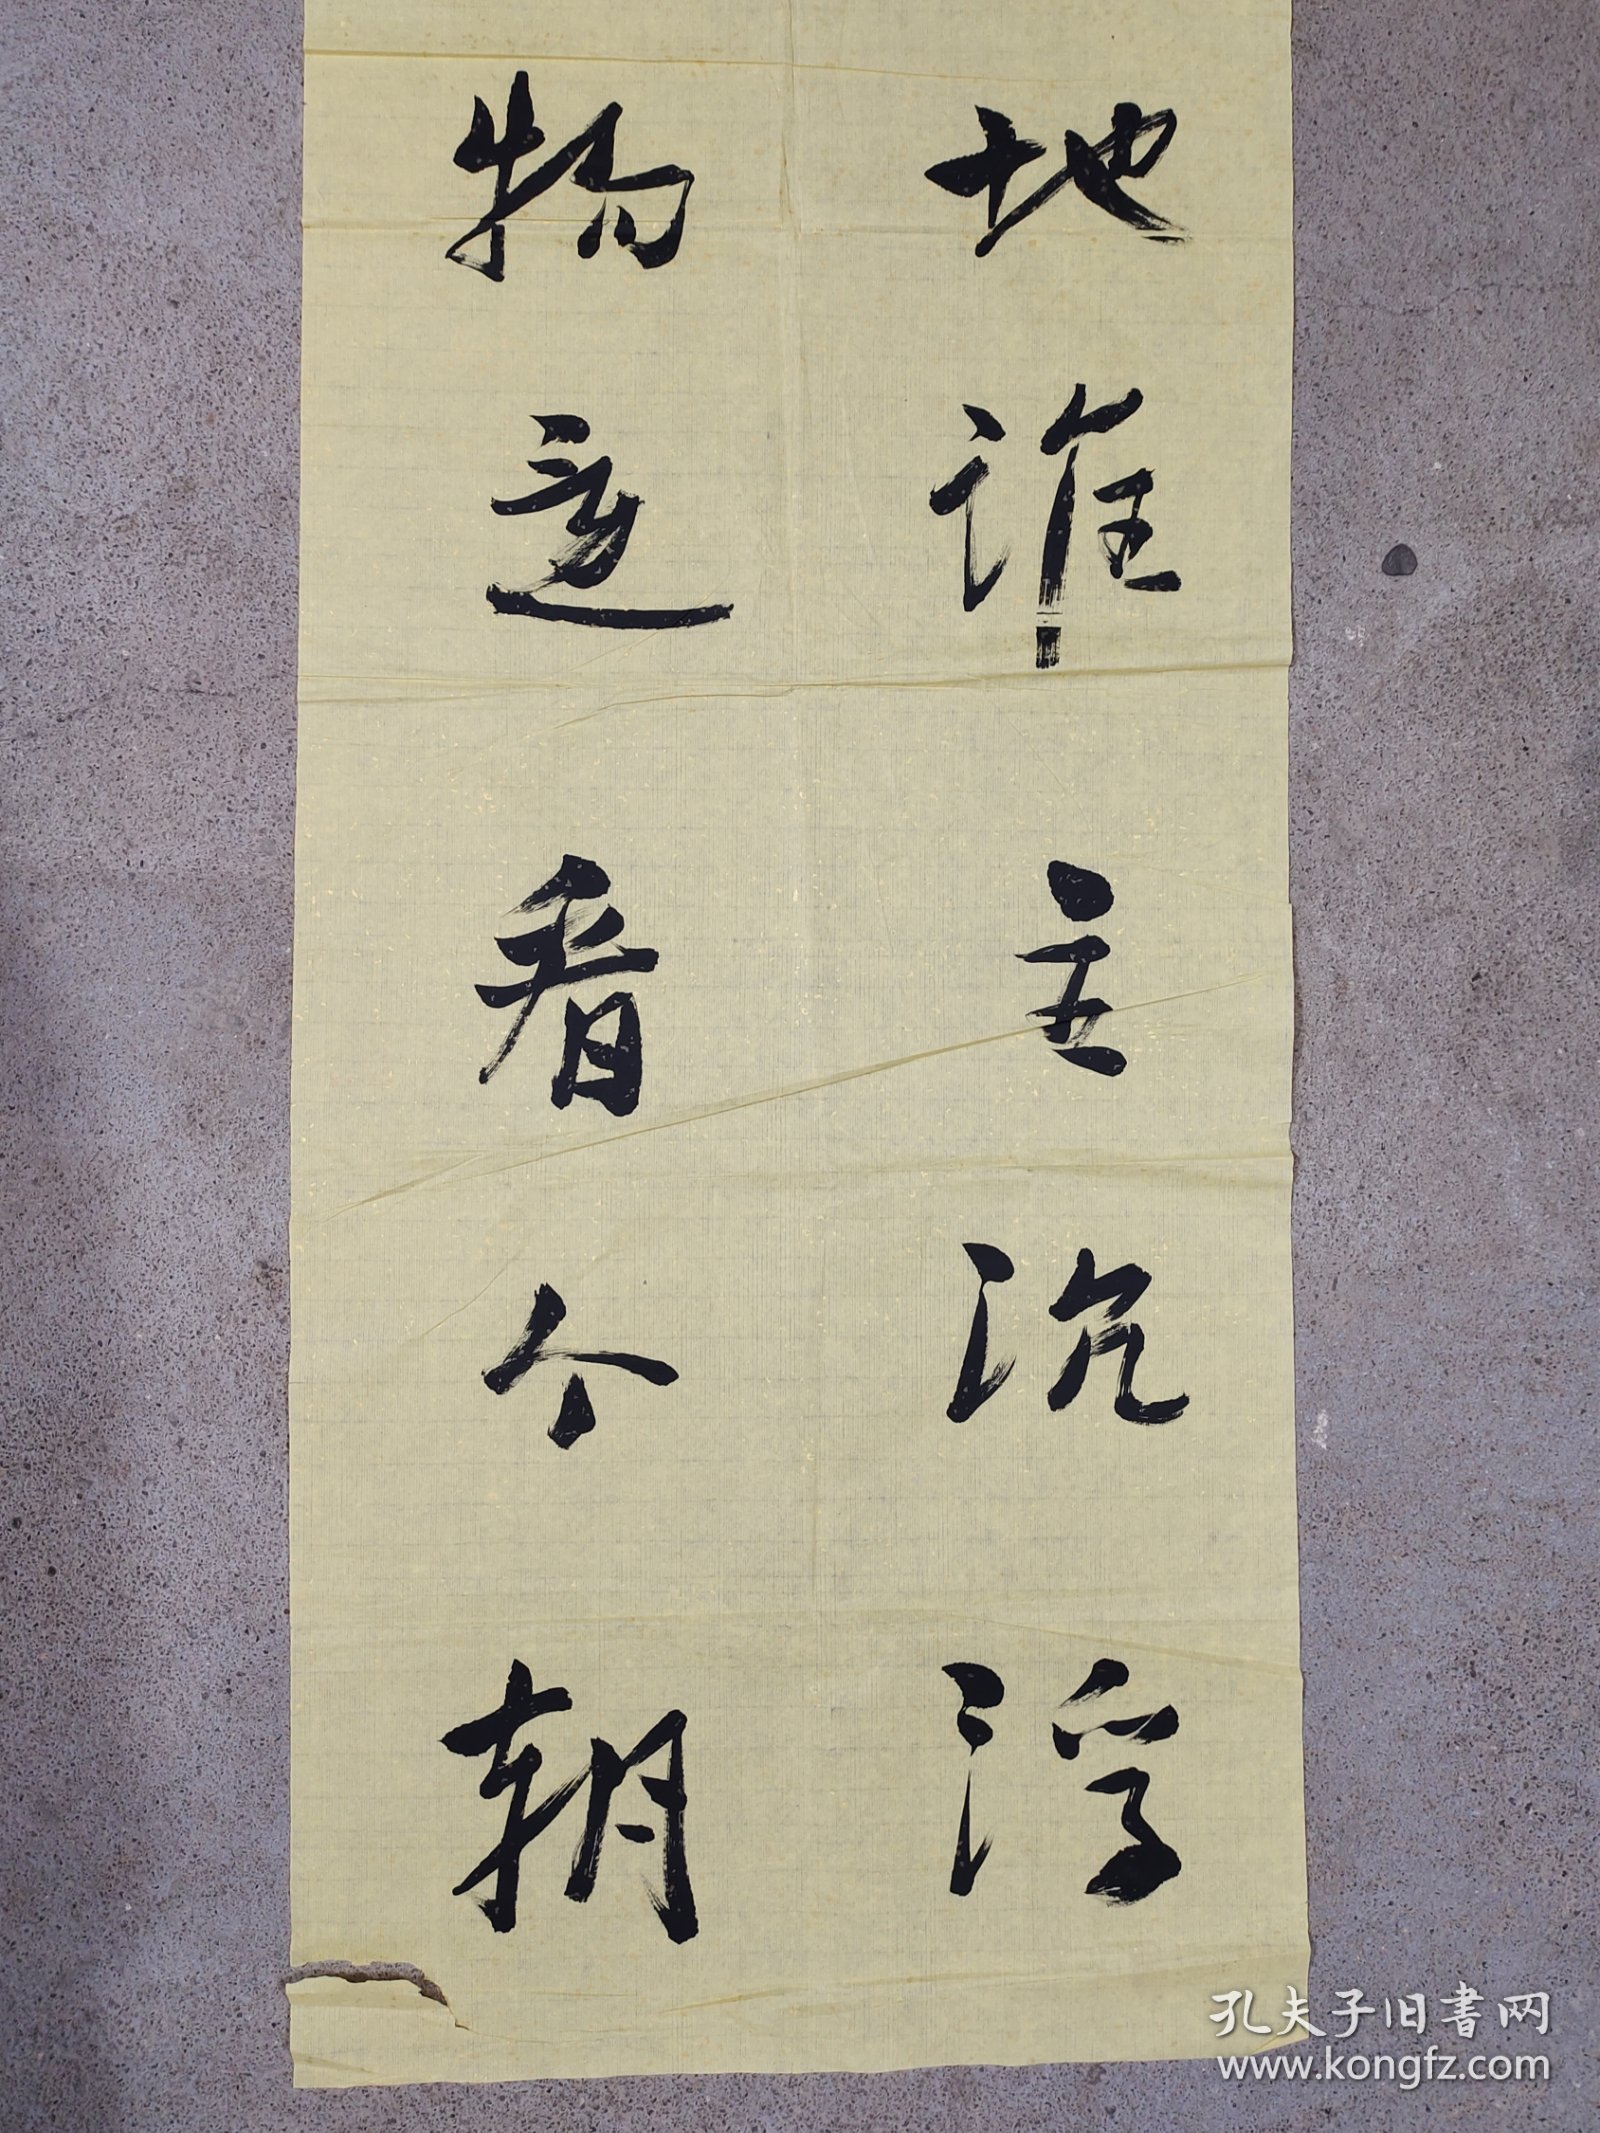 地谁主沉浮
物还看今朝
孔夫子旧书网
www.kongfz.com